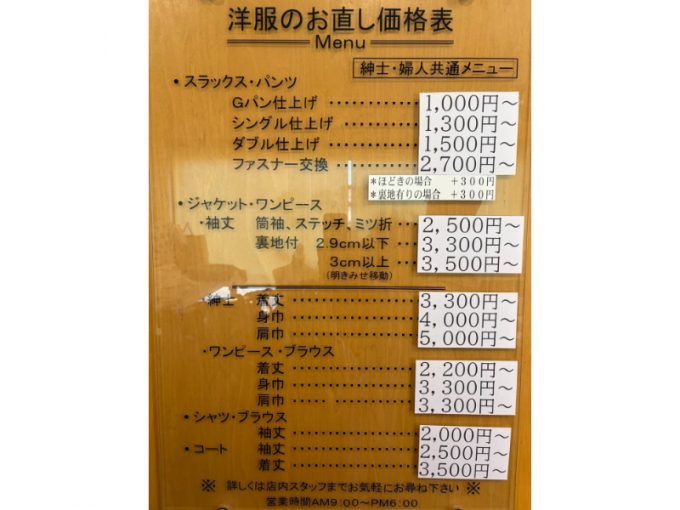 洋服のお直し価格表
Menu
紳士・婦人共通メニュー
・スラックス・パンツ
Gパン仕上げ ・・・・・・・・・・・・ 1,000円～
シングル仕上げ ・・・・・・・・・・・ 1,300円～
ダブル仕上げ ・・・・・・・・・・・・ 1,500円～
ファスナー交換 ・・・・・・・・・・・ 2,700円～
＊ほどきの場合 +300円
＊裏地有りの場合 +300円
・ジャケット・ワンピース
・袖丈 筒袖、ステッチ、ミツ折 ・・・ 2,500円～
裏地付 2.9cm以下 ・・・ 3,300円～
3cm以上 ・・・ 3,500円～
(明きみせ移動)
紳士 着丈 ・・・・・・・・・・・・・・・・ 3,300円～
身巾 ・・・・・・・・・・・・・・・・ 4,000円～
肩巾 ・・・・・・・・・・・・・・・・ 5,000円～
・ワンピース・ブラウス
着丈 ・・・・・・・・・・・・・・・・ 2,200円～
身巾 ・・・・・・・・・・・・・・・・ 3,300円～
肩巾 ・・・・・・・・・・・・・・・・ 3,300円～
・シャツ・ブラウス
袖丈 ・・・・・・・・・・・・・・・・ 2,000円～
・コート 袖丈 ・・・・・・・・・・・・・・・・ 2,500円～
着丈 ・・・・・・・・・・・・・・・・ 3,500円～
※ 詳しくは店内スタッフまでお気軽にお尋ね下さい ※
営業時間AM9:00～PM6:00